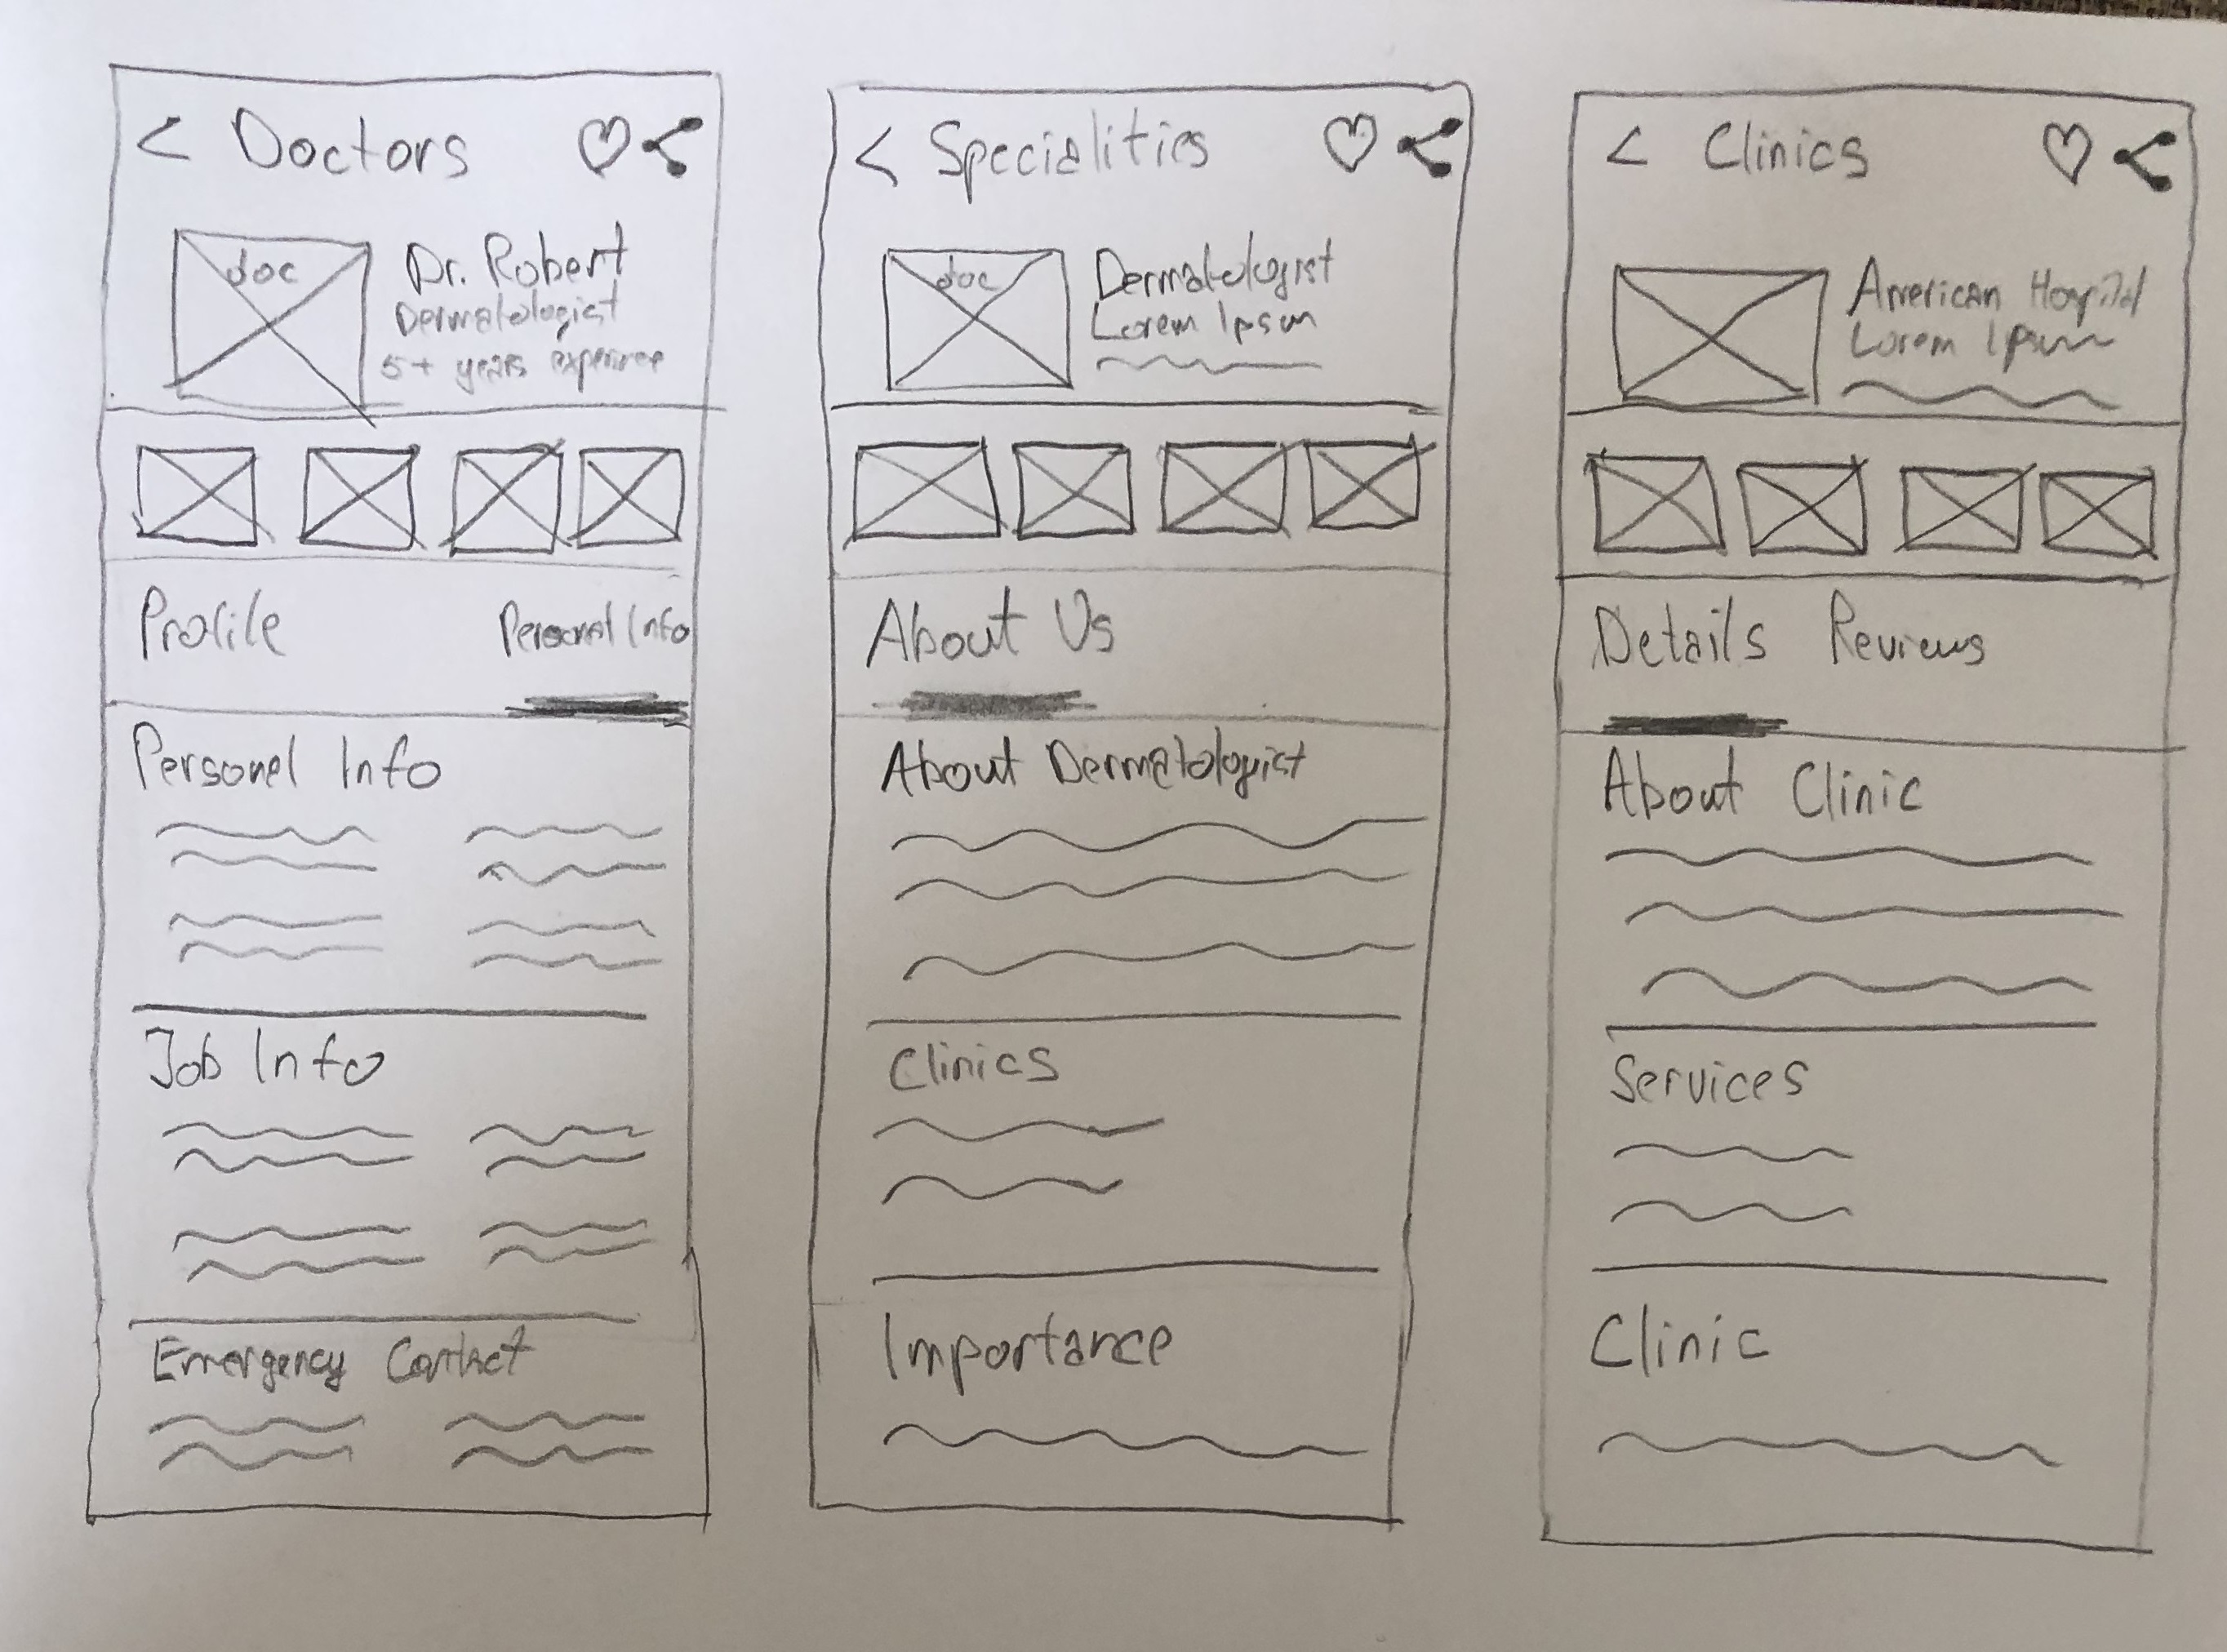 < Doctors
doc
Dr. Robert
Dermatologist
5+ years experience
Profile Personal Info
Personel Info
Job Info
Emergency Contact
< Specialities
doc
Dermatologist
Lorem Ipsum
About Us
About Dermatologist
Clinics
Importance
< Clinics
American Hospital
Lorem Ipsum
Details Reviews
About Clinic
Services
Clinic